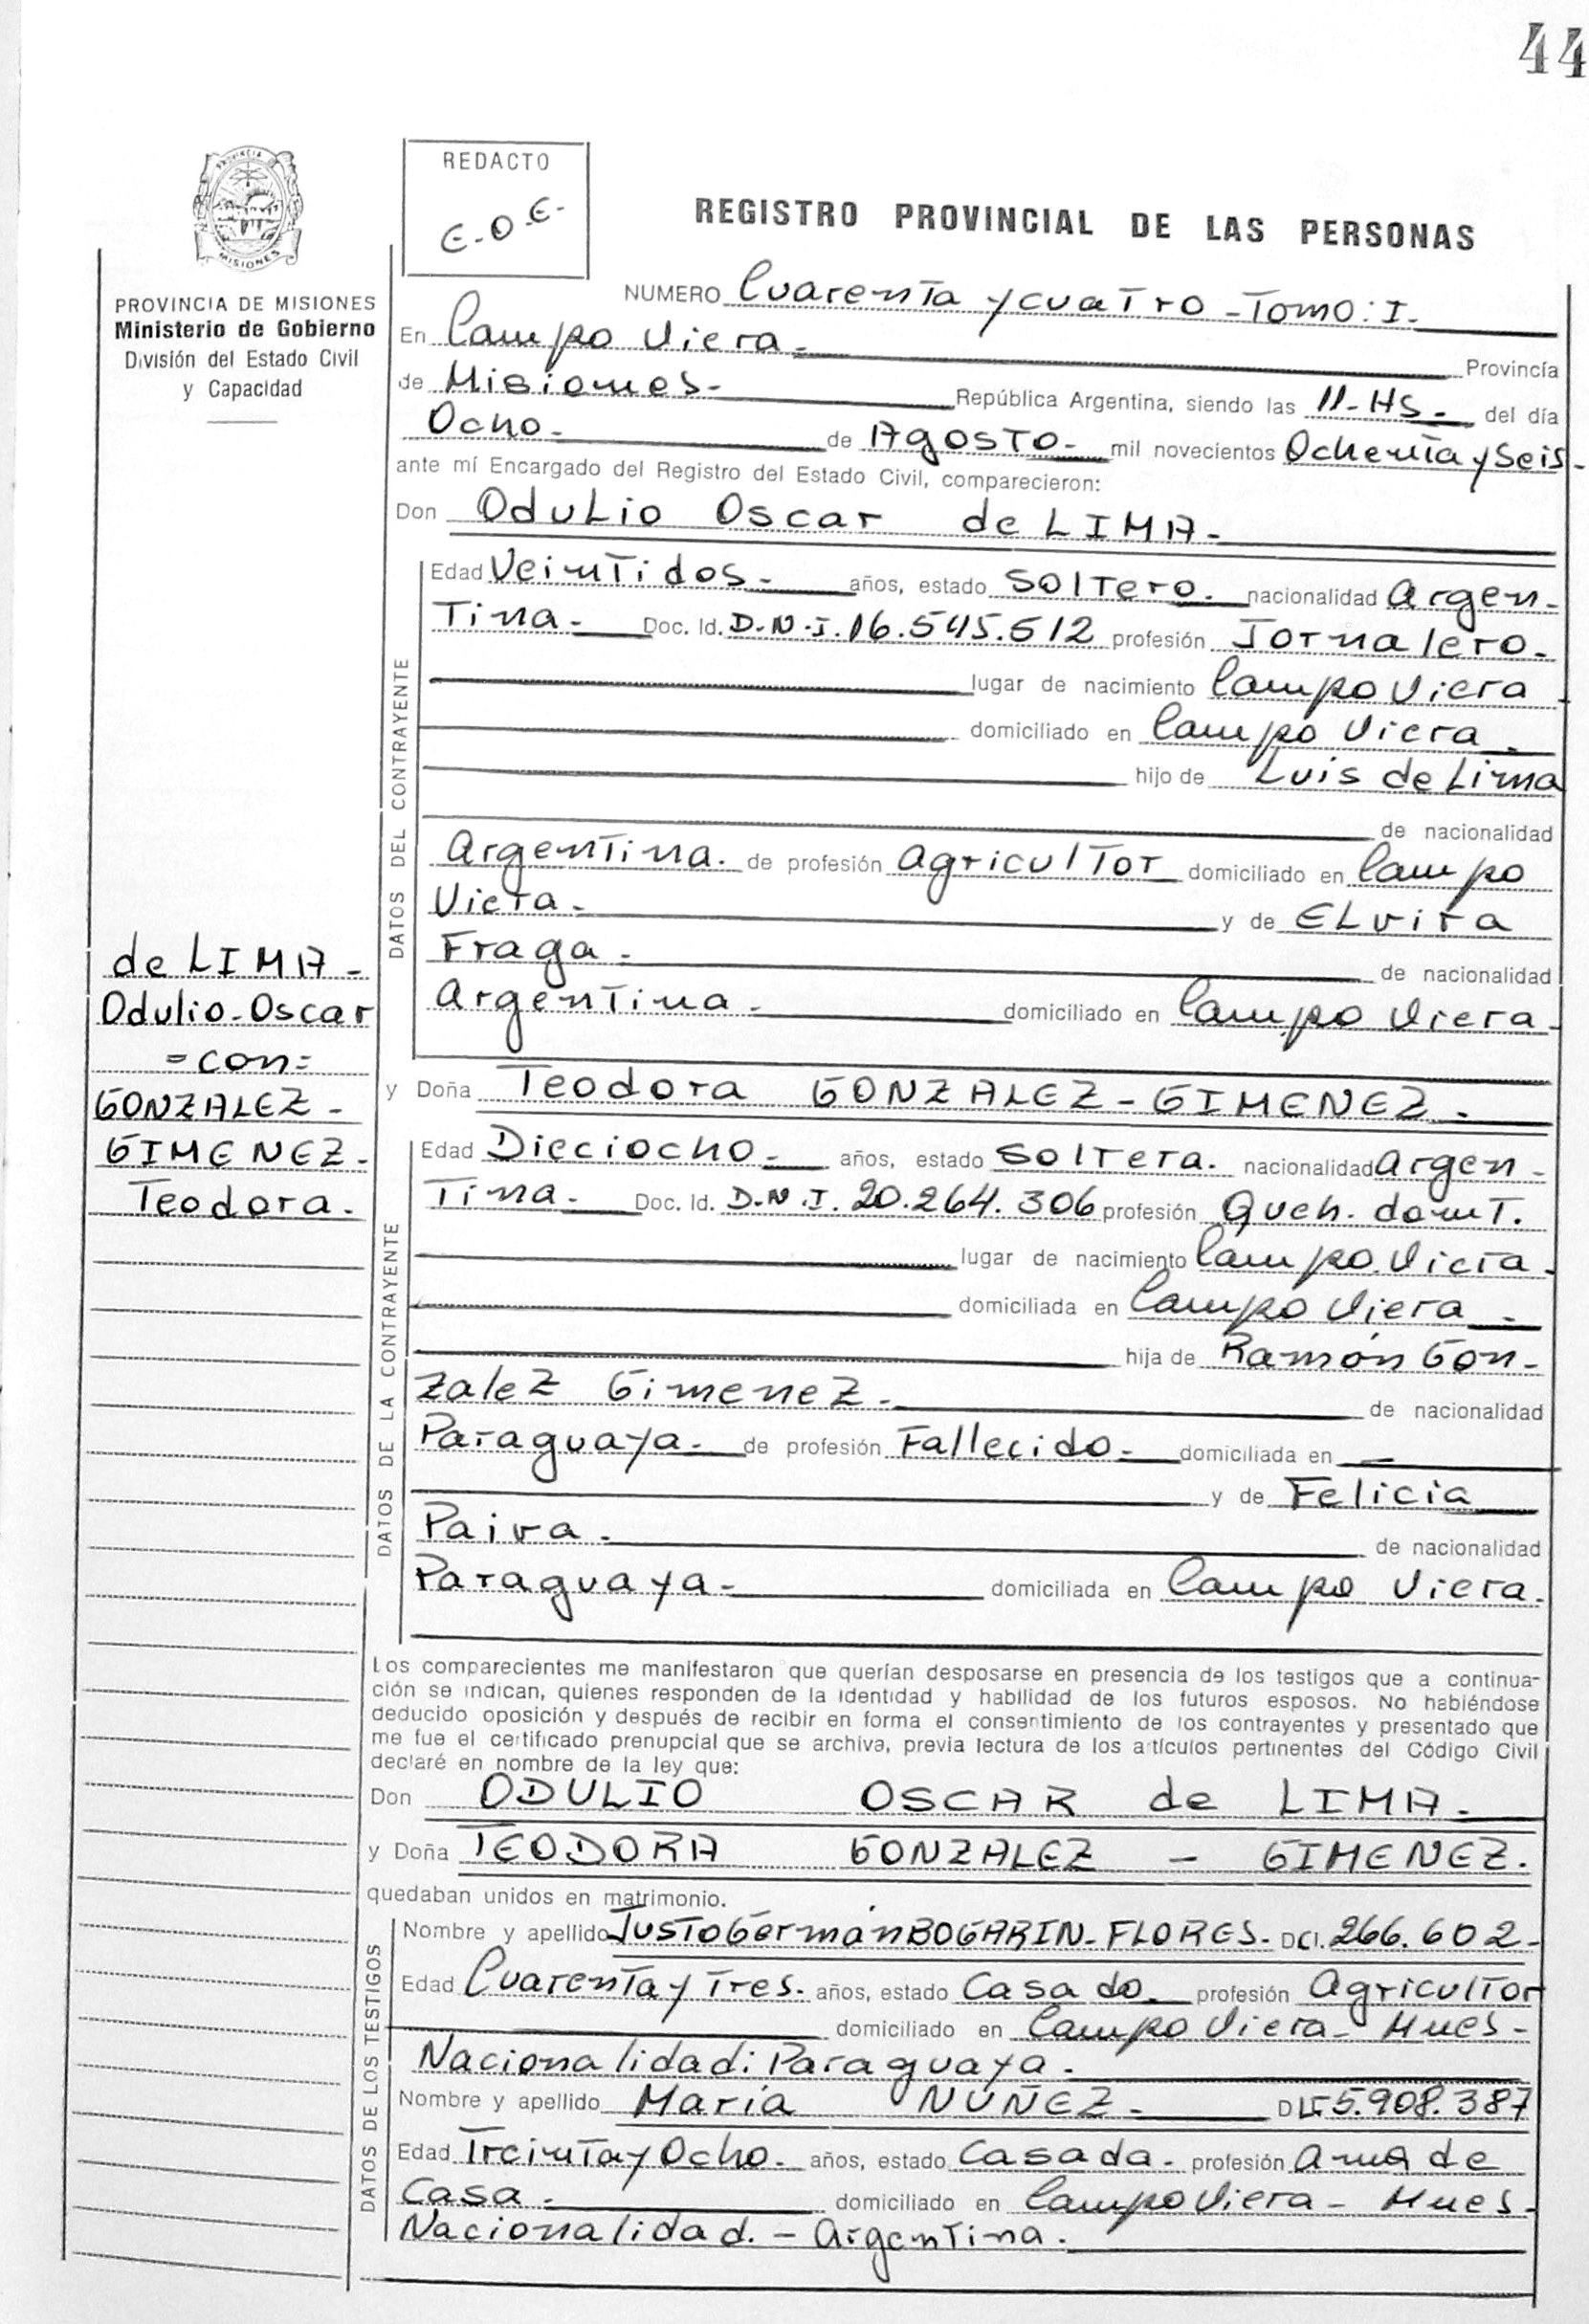 44
PROVINCIA DE
MISIONES
REDACTO
E-O-E-
REGISTRO PROVINCIAL DE LAS PERSONAS
PROVINCIA DE MISIONES
Ministerio de Gobierno
División del Estado Civil
y Capacidad
NUMERO Cuarenta y cuatro - Tomo: I.
En Campo Viera - Provincía
de Misiones- República Argentina, siendo las 11-HS- del día
Ocho- de Agosto- mil novecientos Ochenta y Seis-
ante mí Encargado del Registro del Estado Civil, comparecieron:
Don Odulio Oscar de LIMA-
DATOS DEL CONTRAYENTE
Edad Veintidos- años, estado Soltero. nacionalidad Argen-
Tina- Doc. Id. D.N.I. 16.545.512 profesión Jornalero-
lugar de nacimiento Campo Viera
domiciliado en Campo Viera -
hijo de Luis de Lima
de nacionalidad
Argentina. de profesión Agricultor domiciliado en Campo
Viera- y de Elvira
Fraga- de nacionalidad
Argentina- domiciliado en Campo Viera-
de LIMA-
Odulio-Oscar
=con=
GONZALEZ-
GIMENEZ-
Teodora.
y Doña Teodora GONZALEZ-GIMENEZ.
DATOS DE LA CONTRAYENTE
Edad Dieciocho- años, estado Soltera. nacionalidad Argen-
Tina- Doc. Id. D.N.I. 20.264.306 profesión Queh. domT.
lugar de nacimiento Campo Viera-
domiciliada en Campo Viera -
hija de Ramón Gon-
zalez Gimenez- de nacionalidad
Paraguaya- de profesión Fallecido- domiciliada en -
y de Felicia
Paiva- de nacionalidad
Paraguaya- domiciliada en Campo Viera.
Los comparecientes me manifestaron que querían desposarse en presencia de los testigos que a continua-
ción se indican, quienes responden de la identidad y habilidad de los futuros esposos. No habiéndose
deducido oposición y después de recibir en forma el consentimiento de los contrayentes y presentado que
me fue el certificado prenupcial que se archiva, previa lectura de los artículos pertinentes del Código Civil
declaré en nombre de la ley que:
Don ODULIO OSCAR de LIMA-
y Doña TEODORA GONZALEZ - GIMENEZ.
quedaban unidos en matrimonio.
DATOS DE LOS TESTIGOS
Nombre y apellido Justo Germán BOGARIN-FLORES- DCI. 266.602-
Edad Cuarenta y Tres- años, estado Casado- profesión Agricultor
domiciliado en Campo Viera- Mnes-
Nacionalidad: Paraguaya-
Nombre y apellido María NUÑEZ- 5.908.387
Edad Treinta y Ocho- años, estado Casada- profesión Ama de
Casa- domiciliado en Campo Viera- Mnes-
Nacionalidad.- Argentina-